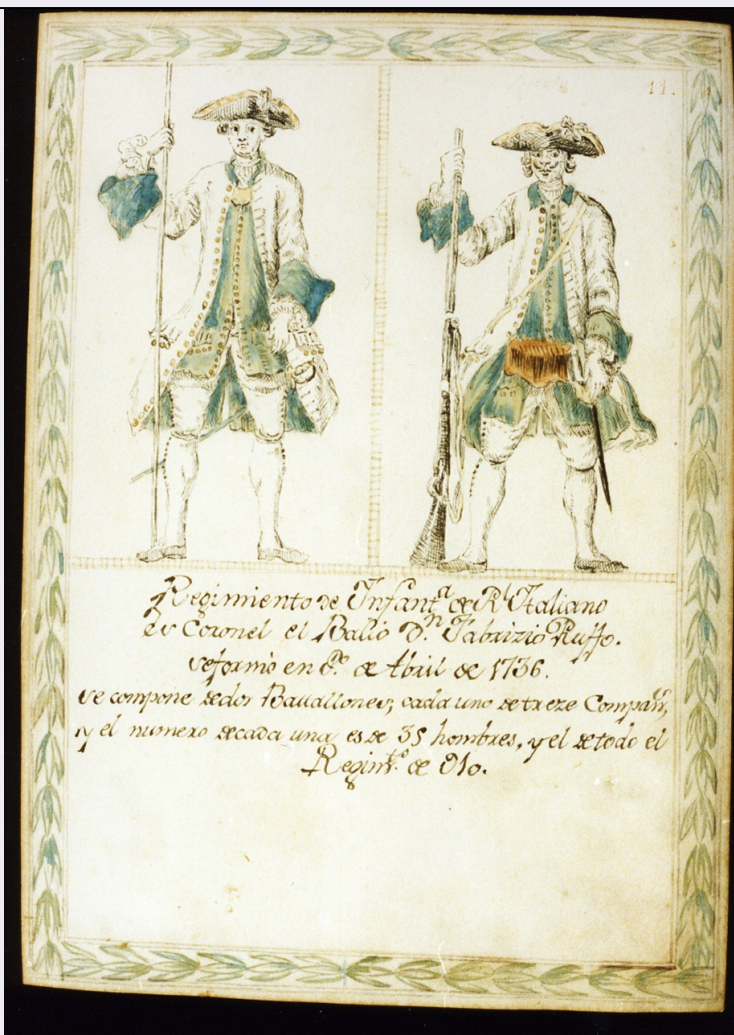 11.
Regimiento de Infant.ª de R.l Italiano
es Coronel el Balio D.n Fabrizio Ruffo.
se formó en P.º de Abril de 1736.
se compone de dos Battallones; cada uno de treze Compañ.s,
y el numero de cada una es de 35 hombres, y el de todo el
Regim.to de 910.